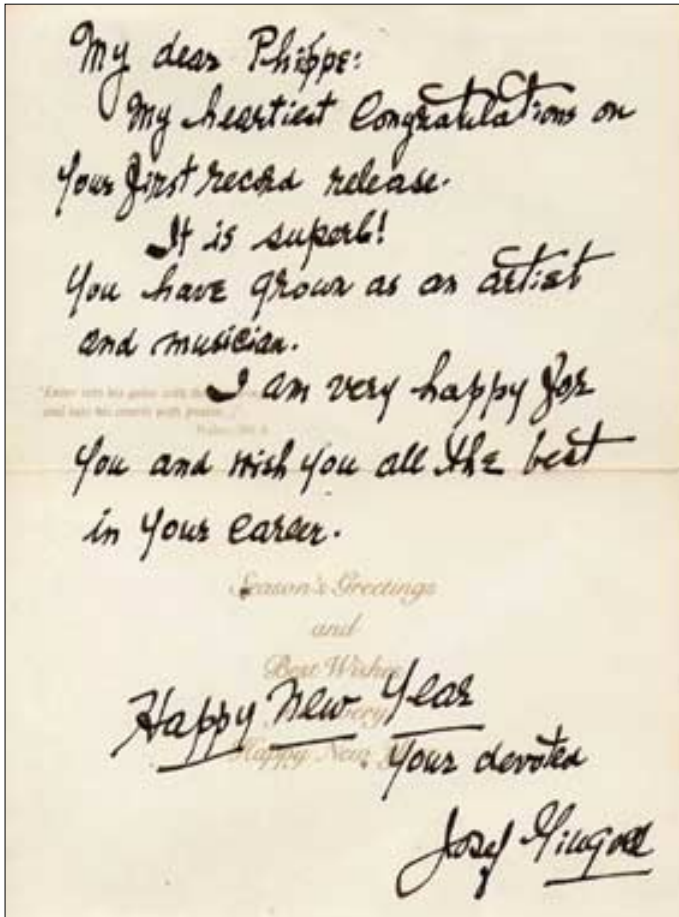 My dear Phippe:
My heartiest Congratulations on
your first record release.
It is superb!
You have grown as an artist
and musician.
"Enter into his gates with
and into his courts with praise..."
I am very happy for
you and wish you all the best
in your career.
Season's Greetings
and
Best Wishes
Happy New Year
Happy New
Your devoted
Josef Gingold